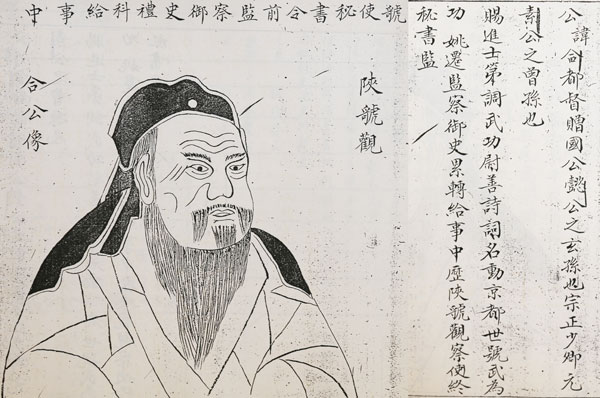 公諱合都督贈國公懿公之玄孫也宗正少卿元
素公之曾孫也
賜進士第調武功尉善詩詞名動京都世號武為
功 姚遷監察御史累轉給事中歷陝號觀察使終
秘書監
號使秘書令前監察御史禮科給事中
陝號觀
合公像